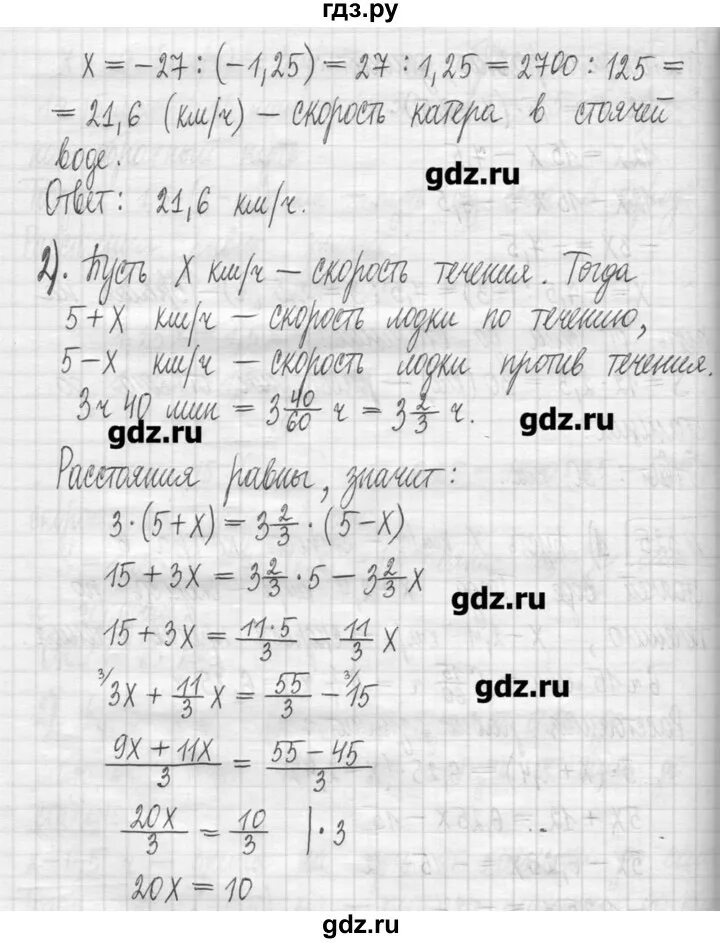 гдз.ру
x = -27 : (-1,25) = 27 : 1,25 = 2700 : 125 =
= 21,6 (км/ч) – скорость катера в стоячей
воде.
gdz.ru
Ответ: 21,6 км/ч.
2). Пусть x км/ч – скорость течения. Тогда
5+x км/ч – скорость лодки по течению,
5-x км/ч – скорость лодки против течения.
3ч 40 мин = 3 40/60 ч = 3 2/3 ч.
gdz.ru
gdz.ru
Расстояния равны, значит:
3·(5+x) = 3 2/3 · (5-x)
15 + 3x = 3 2/3 · 5 - 3 2/3 x
gdz.ru
15 + 3x = 11·5/3 - 11/3 x
3/ 3x + 11/3 x = 55/3 - 3/ 15
gdz.ru
9x + 11x/3 = 55 - 45/3
20x/3 = 10/3 | · 3
20x = 10
gdz.ru